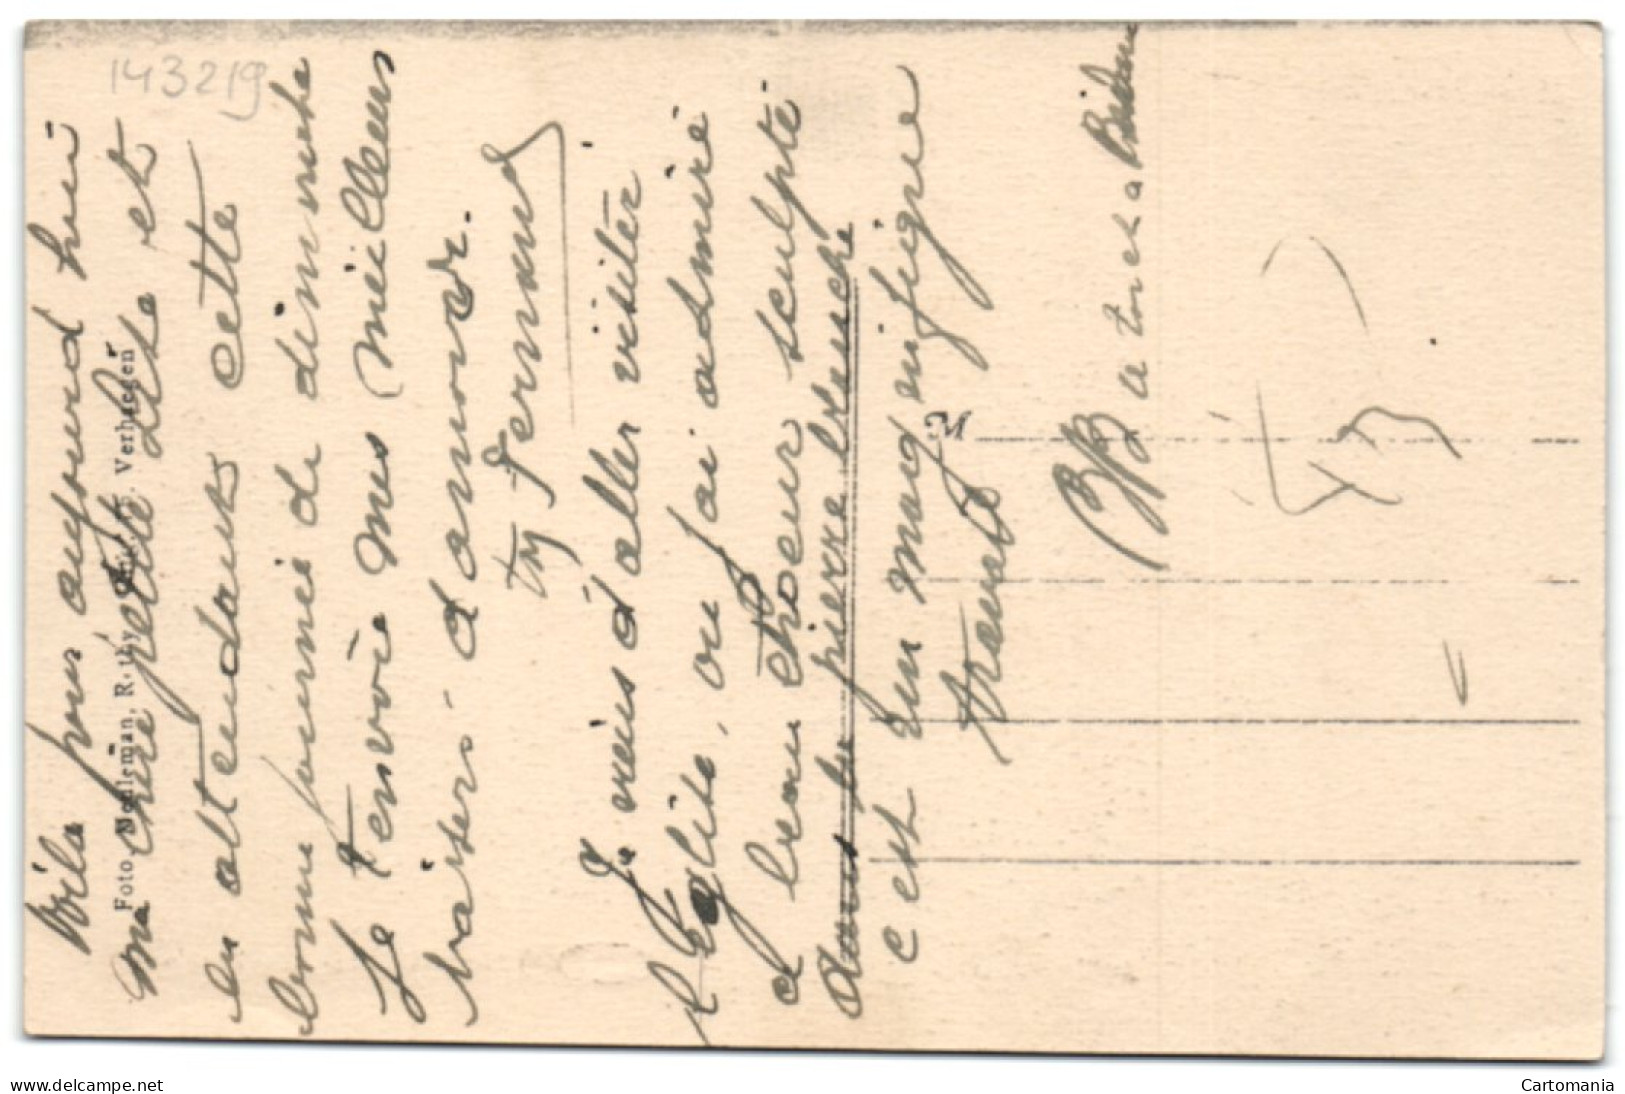 143219
Voila pour aujourd hui
ma chère petite Lise et
en attendant cette
bonne journée de dimanche
Je t'envoie mes meilleurs
baisers d'amour.
Fernand
Je viens d'aller visiter
l'Eglise, ou j'ai admiré
l beau choeur sculpté
dans la pierre blanche
c est un magnifique
travail
Foto Meuleman, R. thy Verhaegen
M
www.delcampe.net
Cartomania